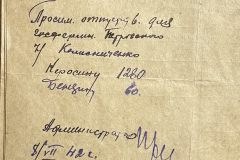 Просим отпустить для
госферми Петровского
ч/ Колисниченко
Керосину 1200
Бензину 60.
Администратор
8/VII 42 г.